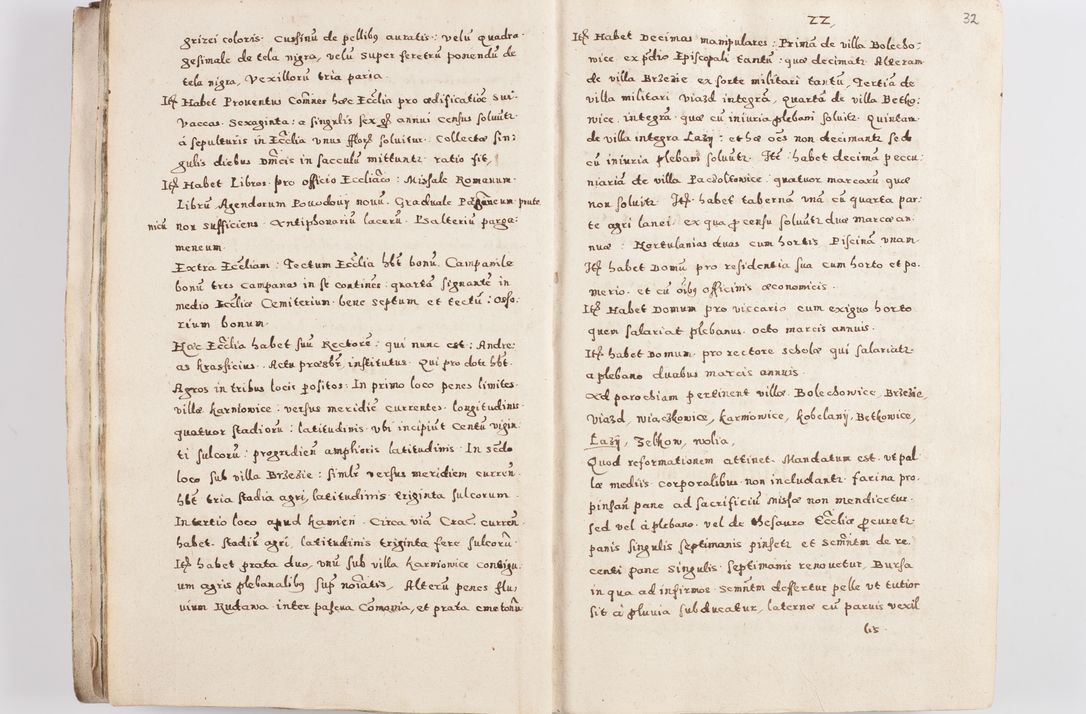 grizei coloris. Cussinũ de pellibꝰ auratis: velũ quadra-
gesimale de tela nigra, velũ super feretrũ ponendũ de
tela nigra, Vexillorũ tria paria.
Itẽ Habet Prouentus Com̃nes hæc Ecclia pro ædificatiõe Sui.
Vaccas. Sexaginta: a singulis sex gš annui census soluũt.
à sepulturis in Ecclia vnus fflorš soluitur. Collectæ sin-
gulis diebus Dm̃cis in sacculũ mittuntr ratio fit,
Itẽ Habet Libros. pro officio Eccliaco: Missale Romanum.
Librũ Agendorum Powodowy nouũ. Graduale Pargãneum prute
nicũ non sufficiens. Antiphonariũ lacerũ. Psalteriũ parga-
meneum.
Extra Eccliam: Tectum Ecclia hẽt bonũ. Campanile
bonũ tres Campanas in se continẽs: quartã signantẽ in
medio Eccliæ Cemiterium. bene septum et tectũ: Osso-
rium bonum.
Hæc Ecclia habet suũ Rectorẽ: qui nunc est: Andre-
as Krassicius. Actu præsbr̃, institutus. Qui pro dote hẽt.
Agros in tribus locis positos: In primo loco penes limites.
villæ Karniowice: versus meridiẽ currentes. longitudinis.
quatuor stadiorũ: latitudinis. vbi incipiũt Centũ vigin-
ti sulcorũ: progrediẽn amplioris latitudinis. In sedo
loco sub villa Brzezie: simlr versus meridiem currẽn.
hẽt tria stadia agri, latitudinis triginta sulcorum.
In tertio loco apud Kamień. Circa viã Crac. currẽn.
habet. stadiũ agri, latitudinis triginta fere sulcorũ.
Itẽ habet prata duo, vnũ sub villa Karniowice contigu-
um agris plebanalibꝰ sup noĩatis, Alterũ penes flu-
uium Rudawa inter pascua Comonia, et prata cmetonũ

22, 32
Itẽ Habet Decimas manipulares: Primã de villa Bolecho-
wice ex p̃dio Episcopali tantũ: quæ decimatr Alteram
de villa Brzezie ex sorte militari tantũ, Tertiã de
villa militari Viazd integrã, quartã de villa Betko-
wice. integrã: quæ cũ iniuria plebani soluitr. Quintam
de villa integra Lazÿ: et hæ oẽs non decimantr sed
cũ iniuria plebani soluũtr. Itẽ habet decimã peccu-
niariã de villa Paczoltowice: quatuor marcarũ quæ
non soluitr. Itẽ habet tabernã vnã cũ quarta par-
te agri lanei. ex qua p censu soluũtr duæ marcæ an-
nuæ: Hortulanias duas cum hortis Piscinã vnam.
Itẽ habet Domũ pro residentia sua cum horto et po-
merio. et cũ oĩbꝰ officinis œconomicis.
Itẽ Habet Domum pro viccario cum exiguo horto
quem salariat plebanus. octo marcis annuis.
Itẽ habet Domum. pro rectore scholæ qui salariatr.
a plebano duabus marcis annuis.
Ad parochiam pertinent villæ. Bolechowice, Brzezie,
Viazd, Wiączkowice, Karniowice, Kobelany, Betkowice,
Lazÿ, Zelkow, Wolia,
Quod reformationem attinet. Mandatum est. vt pal-
læ mediis corporalibus non includantr farina pro-
pinsañ pane ad sacrificiũ Missæ non mendicetur.
sed vel à plebano. vel de thesauro Eccliæ p̱curetr
panis singulis septimanis pinsetr et Semñtm de re-
centi pane Singulis septimanis renouetur, Bursa
in qua ad infirmos Semñtm deffertur pelle vt tutior
sit à pluuia subducatur, laternæ cũ paruis vexil
lis.